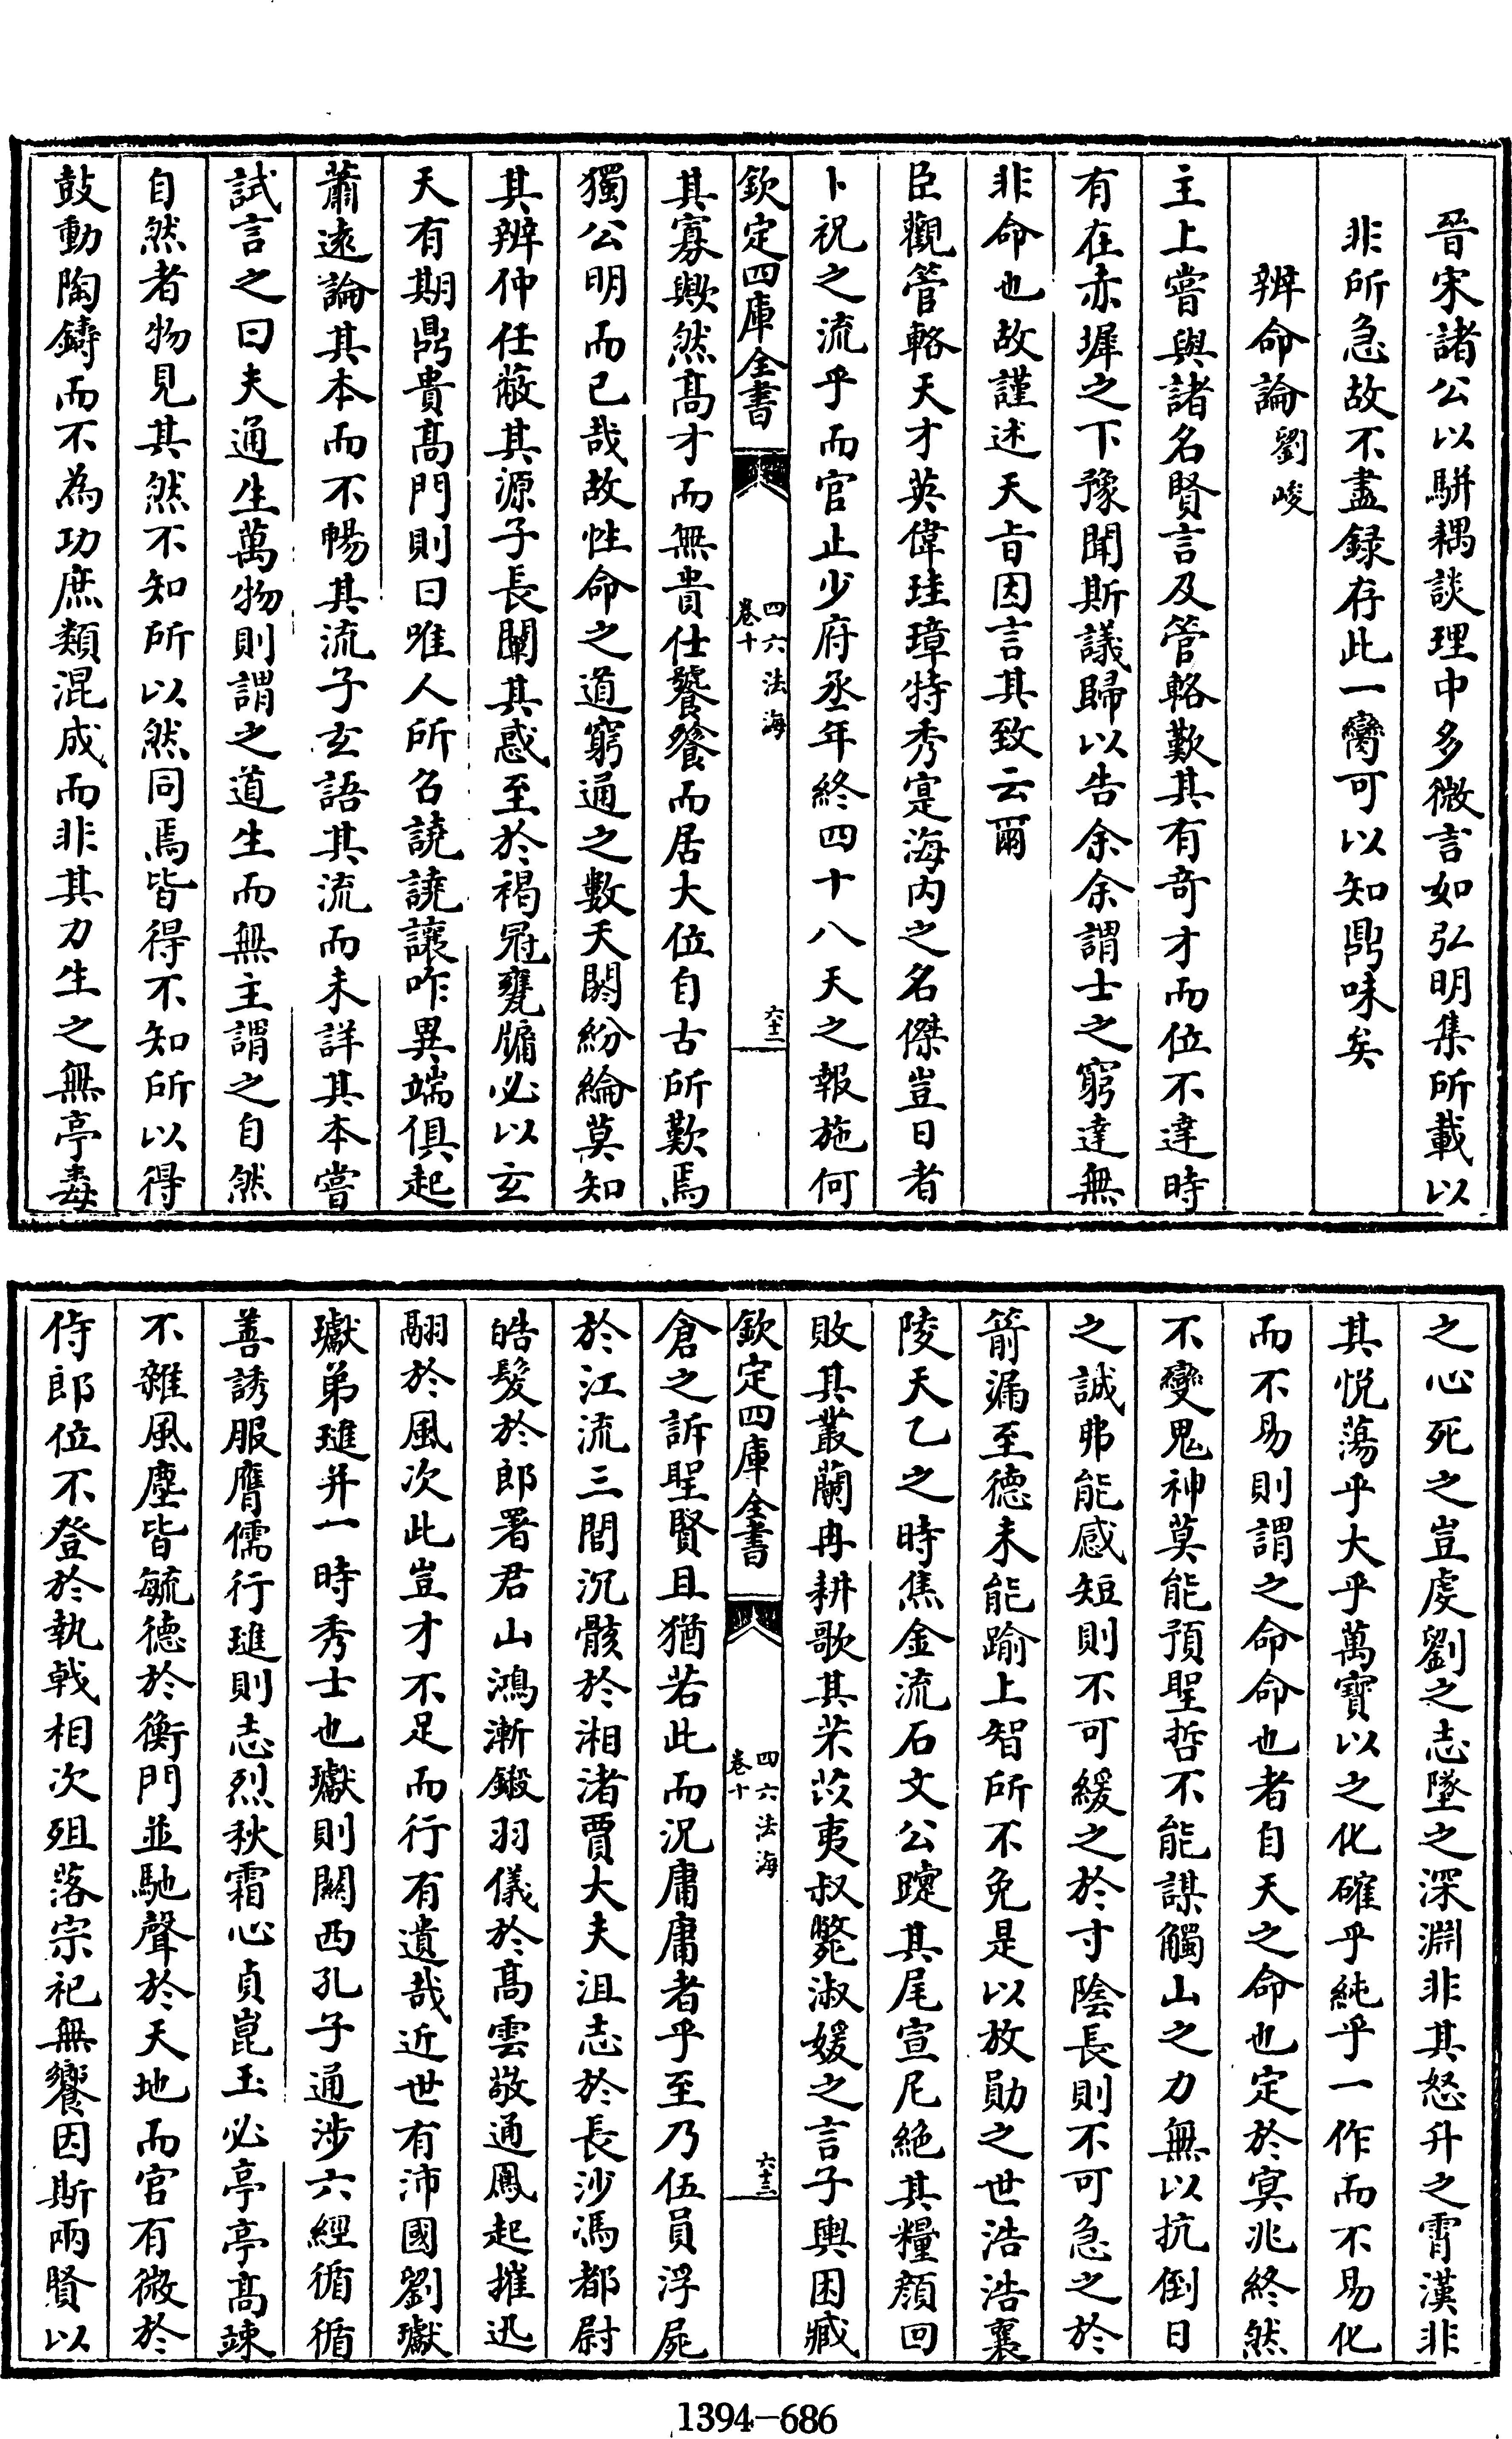 晉宋諸公以駢耦談理中多微言如弘明集所載以
非所急故不盡録存此一臠可以知鼎味矣
辨命論劉峻
主上嘗與諸名賢言及管輅歎其有竒才而位不達時
有在赤墀之下豫聞斯議歸以告余余謂士之窮達無
非命也故謹述天旨因言其致云爾
臣觀管輅天才英偉珪璋特秀寔海内之名傑豈日者
卜祝之流乎而官止少府丞年終四十八天之報施何
欽定四庫全書
四六法海
卷十
六十二
其寡歟然髙才而無貴仕饕餮而居大位自古所歎焉
獨公明而已哉故性命之道窮通之數夭閼紛綸莫知
其辨仲任蔽其源子長闡其惑至於褐冠甕牖必以玄
天有期鼎貴髙門則曰唯人所召譊譊讙咋異端俱起
蕭逺論其本而不暢其流子玄語其流而未詳其本嘗
試言之曰夫通生萬物則謂之道生而無主謂之自然
自然者物見其然不知所以然同焉皆得不知所以得
鼓動陶鑄而不為功庶類混成而非其力生之無亭毒
之心死之豈虔劉之志墜之深淵非其怒升之霄漢非
其悦蕩乎大乎萬寳以之化確乎純乎一作而不易化
而不易則謂之命命也者自天之命也定於冥兆終然
不變鬼神莫能預聖哲不能謀觸山之力無以抗倒日
之誠弗能感短則不可緩之於寸陰長則不可急之於
箭漏至德未能踰上智所不免是以放勛之世浩浩襄
陵天乙之時焦金流石文公躓其尾宣尼絶其糧顔回
敗其叢蘭冉耕歌其芣苡夷叔斃淑媛之言子輿困臧
欽定四庫全書
四六法海
卷十
六十三
倉之訴聖賢且猶若此而況庸庸者乎至乃伍員浮屍
於江流三閭沉骸於湘渚賈大夫沮志於長沙馮都尉
皓髮於郎署君山鴻漸鎩羽儀於髙雲敬通鳳起摧迅
翮於風次此豈才不足而行有遺哉近世有沛國劉瓛
瓛弟璡并一時秀士也瓛則關西孔子通涉六經循循
善誘服膺儒行璡則志烈秋霜心貞崑玉必亭亭髙竦
不雜風塵皆毓德於衡門並馳聲於天地而官有微於
侍郎位不登於執㦸相次殂落宗祀無饗因斯兩賢以
1394-686